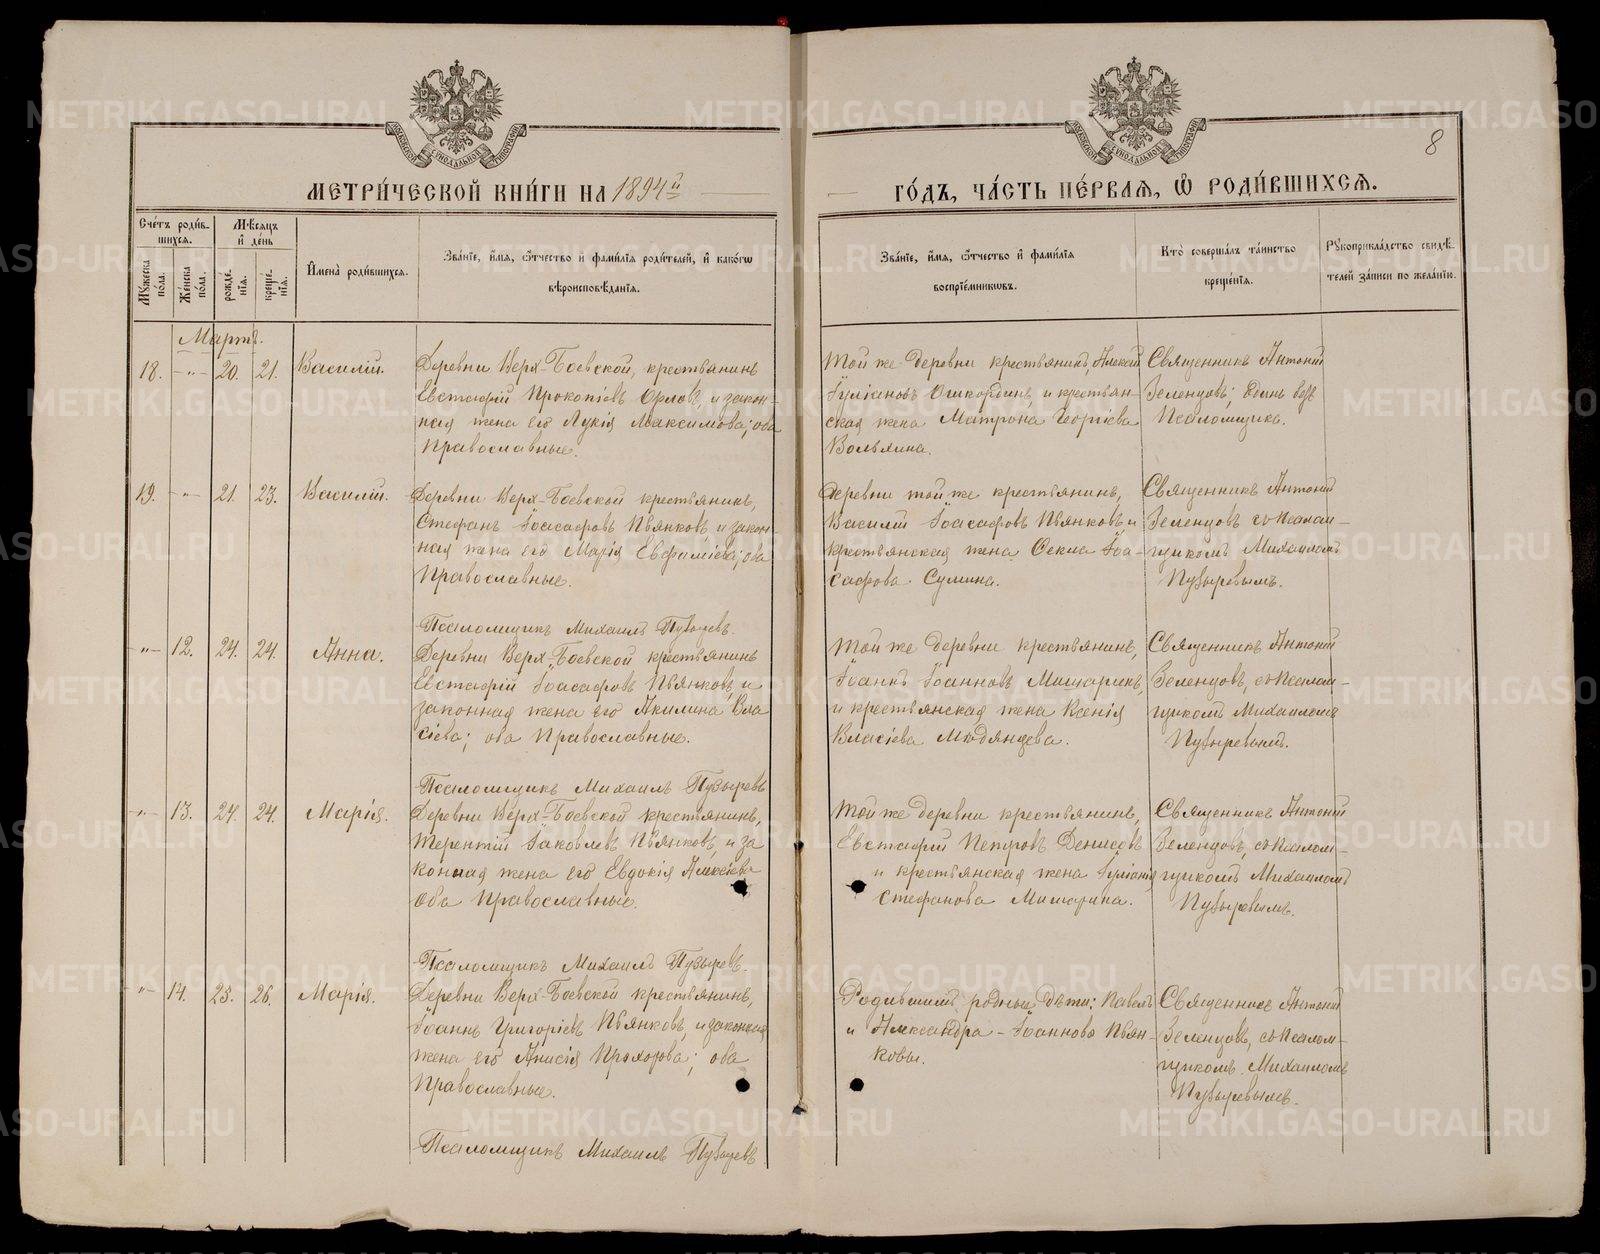 МЕТРИ́ЧЕСКОЙ КНИ́ГИ НА 1894й
ГО́ДЪ, ЧА́СТЬ ПЕ́РВАѦ, Ѽ РОДИ́ВШИХСѦ.
8
Сче́тъ роди́в-
шихсѧ.
Мѣ́сѧцъ
и҆ де́нь
Мꙋ́жеска
по́ла.
Же́нска
по́ла.
рожде́-
нїѧ.
креще́-
нїѧ.
И҆мена̀ роди́вшихсѧ.
Зва́нїе, и҆́мѧ, ѻ҆́тчество и҆ фами́лїѧ роди́телей, и҆ како́гѡ
вѣроисповѣ́данїѧ.
Зва́нїе, и҆́мѧ, ѻ҆́тчество и҆ фами́лїѧ
воспрїе́мникѡвъ.
Кто̀ соверша́лъ та́инство
креще́нїѧ.
Рꙋкоприкла́дство свидѣ́-
телей за́писи по жела́нїю.
Мартъ.
18. -"- 20. 21. Василій.
Деревни Верх-Боевской, крестьянинъ
Евстафій Прокопіевъ Орловъ, и закон-
ная жена его Лукія Максимова; оба
Православные.
Той же деревни крестьянинъ, Алексій
и крестьян-
ская жена Матрона Георгіева
Священникъ Антоній
Зеленцовъ; былъ безъ
Псаломщика.
19. -"- 21. 23. Василій.
Деревни Верх-Боевской крестьянинъ,
Стефанъ Іоасафовъ Пьянковъ, и закон-
ная жена его Марія Евфиміева; оба
Православные.
Деревни той же крестьянинъ,
Василій Іоасафовъ Пьянковъ и
крестьянская жена Фекла Іоа-
сафова Сумина.
Священникъ Антоній
Зеленцовъ съ Псалом-
щикомъ Михаиломъ
Пузыревымъ.
Псаломщикъ Михаилъ Пузыревъ.
-"- 12. 24. 24. Анна.
Деревни Верх-Боевской крестьянинъ
Евстафій Іоасафовъ Пьянковъ, и
законная жена его Акилина Вла
сіева; оба Православные.
Той же деревни крестьянинъ,
Іоаннъ Іоанновъ Мишаринъ,
и крестьянская жена Ксенія
Власіева Мюдянцева.
Священникъ Антоній
Зеленцовъ, съ Псалом-
щикомъ Михаиломъ
Пузыревымъ.
Псаломщикъ Михаилъ Пузыревъ
-"- 13. 24. 24. Марія.
Деревни Верх-Боевской крестьянинъ,
Терентій Іаковлевъ Пьянковъ, и за
конная жена его Евдокія Алексіева
Оба Православные.
Той же деревни крестьянинъ,
Евстафій Петровъ Денисовъ
и крестьянская жена Іуліанія
Стефанова Мишарина.
Священникъ Антоній
Зеленцовъ, съ Псалом-
щикомъ Михаиломъ
Пузыревымъ.
Псаломщикъ Михаилъ Пузыревъ.
-"- 14. 25. 26. Марія.
Деревни Верх-Боевской крестьянинъ,
Іоаннъ Григоріевъ Пьянковъ, и законная
жена его Анисія Прохорова; оба
Православные.
Родившимъ родные дѣти: Павелъ
и Александра - Іоанновы Пьян-
ковы.
Священникъ Антоній
Зеленцовъ, съ Псалом-
щикомъ Михаиломъ
Пузыревымъ.
Псаломщикъ Михаилъ Пузыревъ